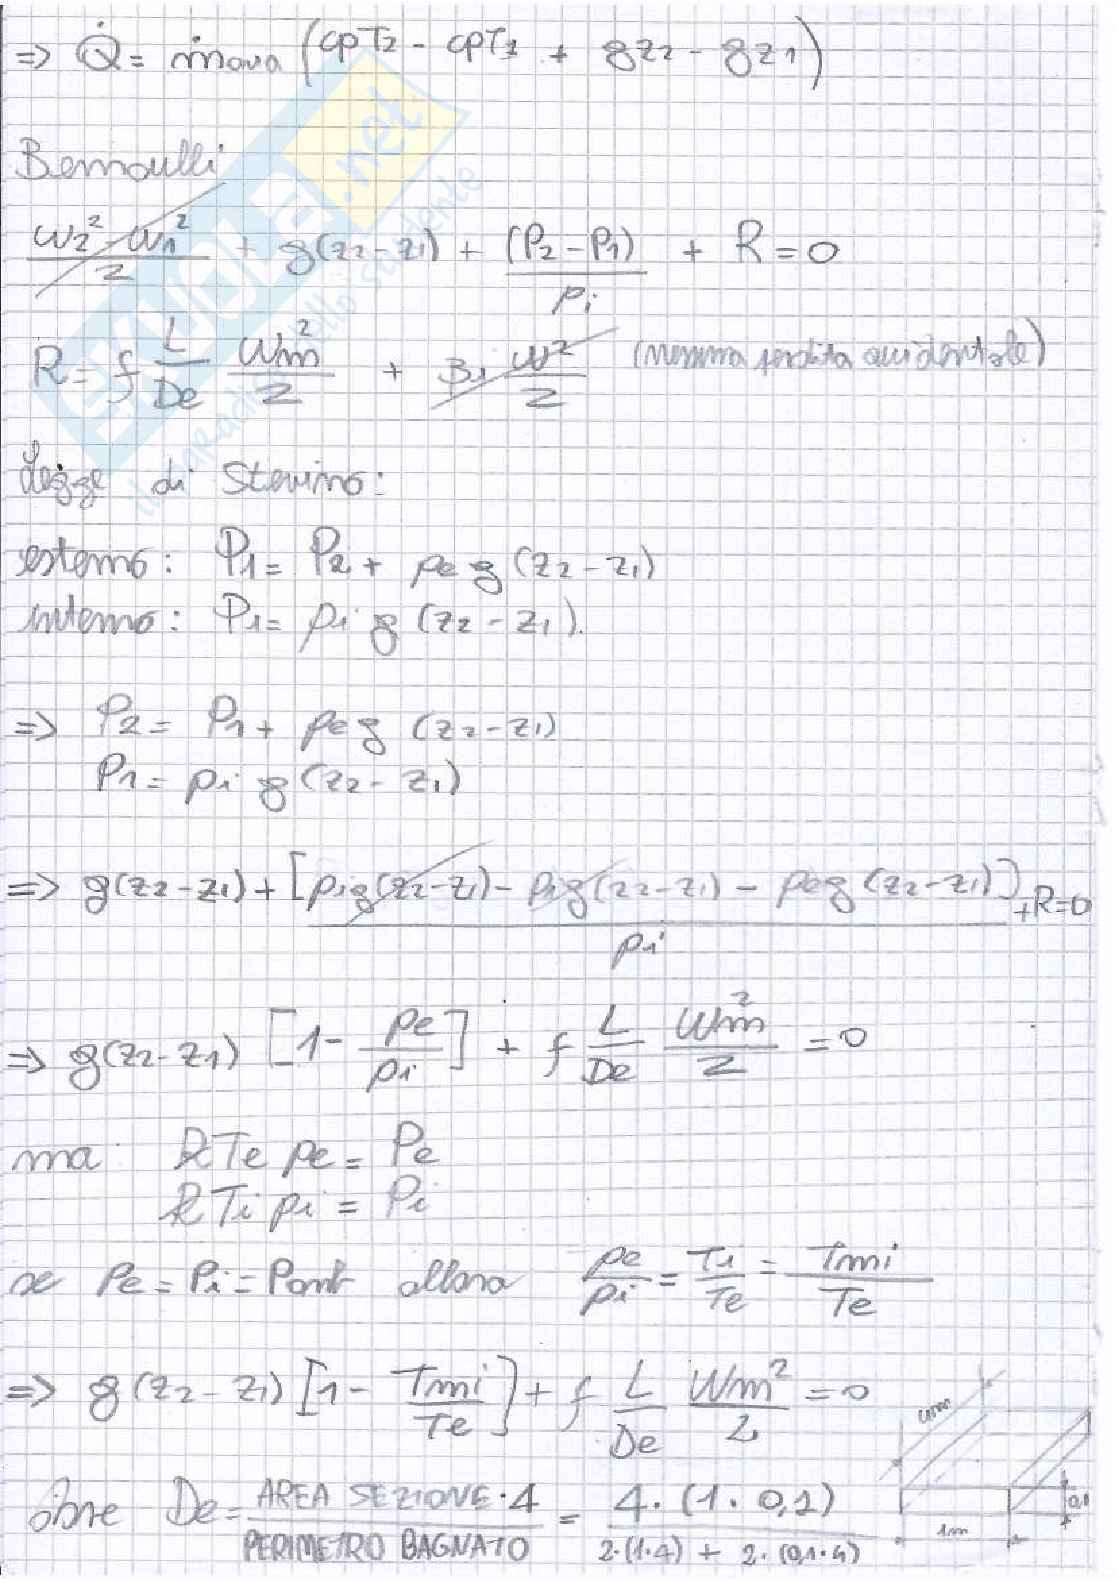 => Q̇ = ṁaria (cpT2 - cpT1 + gz2 - gz1)
Bernoulli
(w2² - w1²)/2 + g(z2-z1) + (P2-P1)/ρi + R = 0
R = f L/De wm²/2 + βi w²/2 (nessuna perdita accidentale)
Legge di Stevino:
esterno: P1 = P2 + ρe g (z2-z1)
interno: P1 = ρi g (z2-z1).
=> P2 = P1 + ρe g (z2-z1)
P1 = ρi g (z2-z1)
=> g(z2-z1) + [ρig(z2-z1) - ρig(z2-z1) - ρeg(z2-z1)]/ρi + R=0
=> g(z2-z1) [1- ρe/ρi] + f L/De wm²/2 = 0
ma RTe ρe = Pe
RTi ρi = Pi
se Pe = Pi = Pamb allora ρe/ρi = Ti/Te = Tmi/Te
=> g(z2-z1) [1- Tmi/Te] + f L/De wm²/2 = 0
dove De = AREA SEZIONE·4/PERIMETRO BAGNATO = 4·(1·0,1)/2·(1·4) + 2·(0,1·4)
4m
0,1
1m
SKUOLA.net
il paradiso dello studente